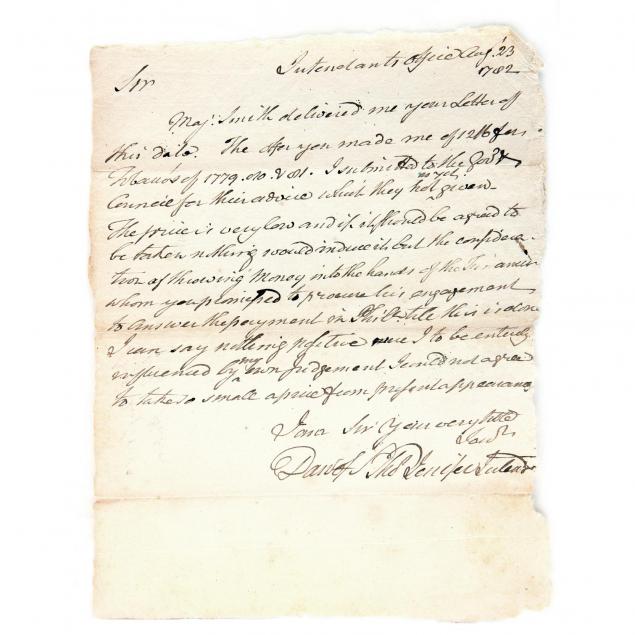 Intendants Office Aug.t 23
1782
Sir
Maj.r Smith delivered me your Letter of
this date. The offer you made me of 12/6 for
Tobacco's of 1779. 80. & 81. I submitted to the Gov.r &
Council for their advice which they not yet given
The price is very low and if it should be agreed to
be taken nothing would induce it but the considera-
tion of throwing Money into the hands of the Financier
whom you promised to procure his engagement
to answer the payment in Phil.a till this is done
I can say nothing positive were I to be entirely
influenced by my own Judgement I would not agree
to take so small a price from present appearances
I am Sir Your very hble
Serv.t
Dan of S.t Tho Jenifer Intend.t